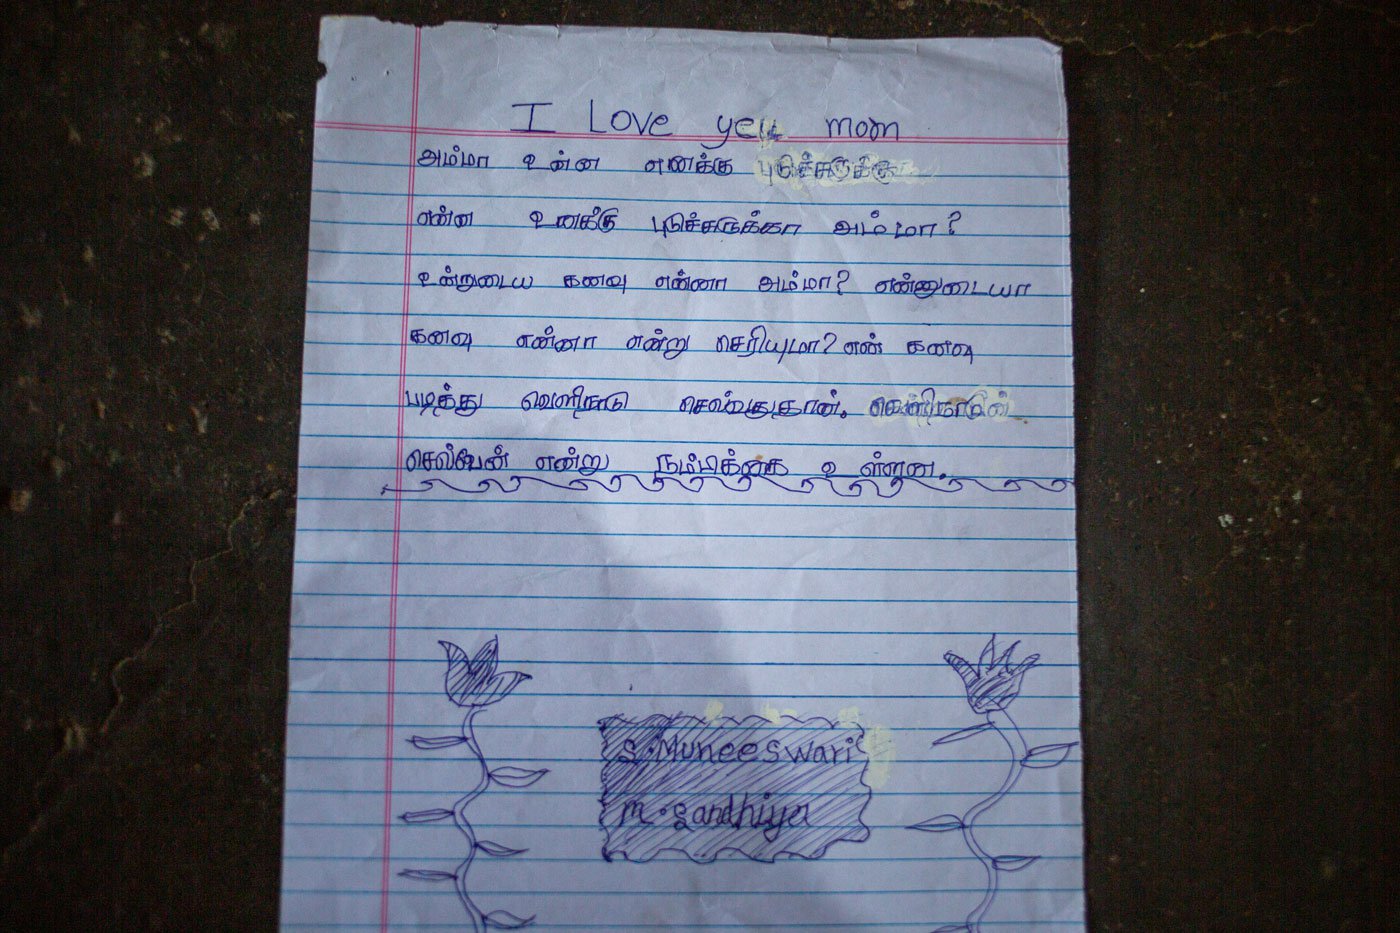 I Love you mom
அம்மா உன்ன எனக்கு புடுச்சுருக்கு
என்ன உனக்கு புடுச்சுருக்கா அம்மா?
உன்றுடைய கனவு என்னா அம்மா? என்னுடையா
கனவு என்னா என்று செரியுமா? என் கனவு
படித்து வெளிநாடு செல்வதுதான். வெளிநாடுன்
செல்வேன் என்று நம்பிக்கை உள்ளன.
S. Muneeswari
M. Sandhiya